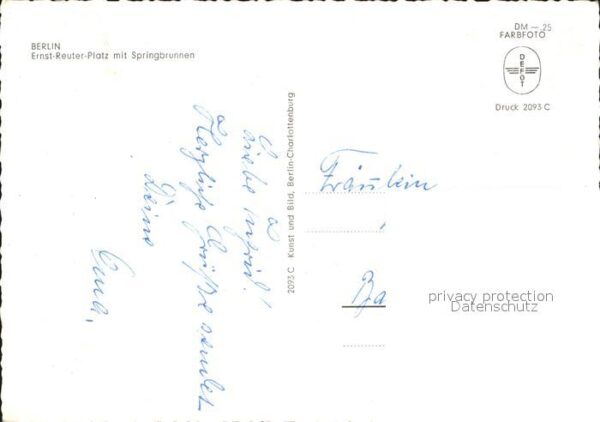 BERLIN
Ernst-Reuter-Platz mit Springbrunnen
DM -.25
FARBFOTO
DEFOT
Druck 2093 C
Liebe Ingrid!
Herzliche Grüße sendet
Deine
Oma.
2093 C Kunst und Bild, Berlin-Charlottenburg
Fräulein
Ba
privacy protection
Datenschutz